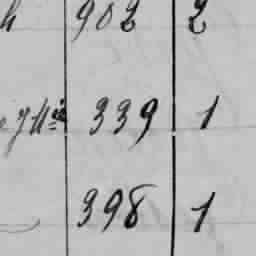 902 2
339 1
398 1